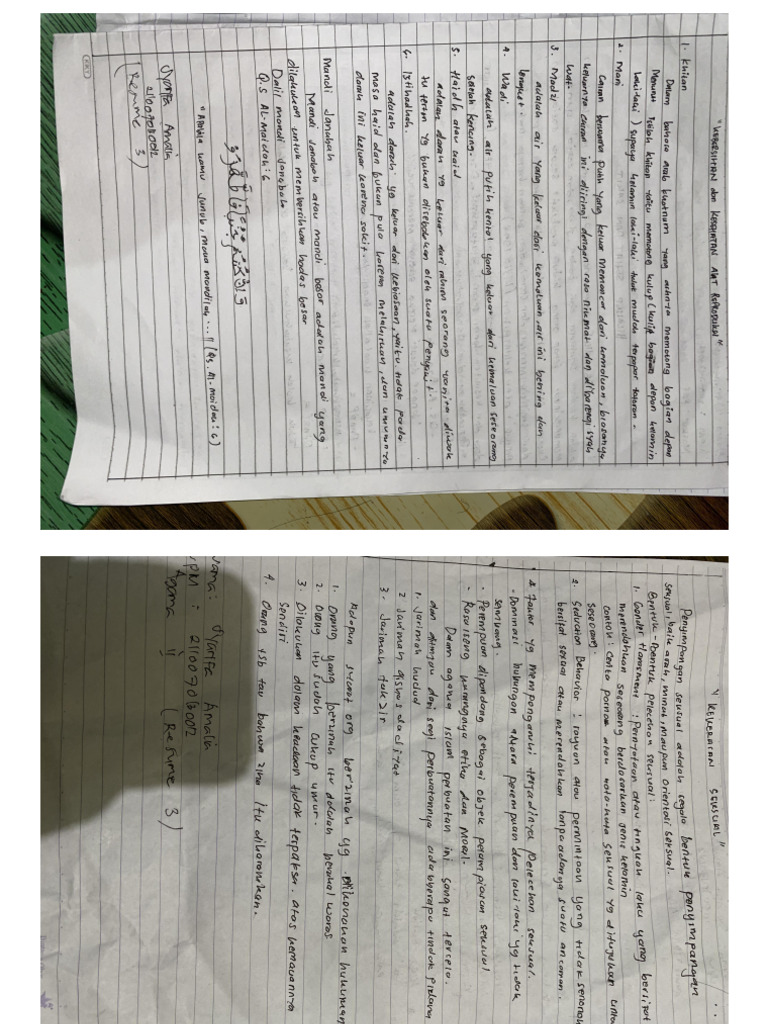 "KEBERSIHAN dan KESEHATAN ALAT REPRODUKSI"
1. Khitan
Dalam bahasa arab khatnum yang artinya memotong bagian depan
Menurut Istilah khitan yaitu memotong kulup (kulit bagian depan kelamin
laki-laki) supaya kelamin laki-laki tidak mudah terpapar
2. Mani
Cairan berwarna putih yang keluar memancar dari kemaluan, biasanya
keluarnya cairan ini diiringi dengan rasa nikmat dan dibarengi syah
wat.
3. Madzi
adalah air yang keluar dari kemaluan, air ini bening dan
lengket.
4. Wadi
adalah air putih kental yang keluar dari kemaluan seseorang
setelah kencing.
5. Haidh atau haid
adalah darah yg keluar dari rahim seorang wanita diwak
tu tertentu yg bukan disebabkan oleh suatu penyakit.
6. Istihadhah.
adalah darah yg keluar dari kebiasaan, yaitu tidak pada
masa haid dan bukan pula karena melahirkan, dan umumnya
darah ini keluar karena sakit.
Mandi Janabah
Mandi Janabah atau mandi besar adalah mandi yang
dilakukan untuk membersihkan hadas besar
Dalil mandi Janabah
Q.S AL-Maidah : 6
وَإِنْ كُنْتُمْ جُنُبًا فَاطَّهَّرُوا
"Apabila kamu junub, maka mandilah ... " (Qs. Al-maidah : 6)
Syarifa Amalia
(Resume 3)
"KEKERASAN SEKSUAL"
Penyimpangan seksual adalah segala bentuk penyimpangan
seksual, baik arah, minat, maupun orientasi seksual.
Bentuk-bentuk pelecehan seksual:
1. Gender Harassment : Pernyataan atau tingkah laku yang bersifat
merendahkan seseorang berdasarkan jenis kelamin
contoh : cerita porno atau kata-kata seksual yg ditujukan untuk
seseorang.
2. Seduction Behavior : rayuan atau permintaan yang tidak senonoh
bersifat seksual atau merendahkan tanpa adanya suatu ancaman.
Faktor yg mempengaruhi terjadinya pelecehan seksual.
- Dominasi hubungan antara perempuan dan laki-laki yg tidak
seimbang.
- Perempuan dipandang sebagai objek pelampiasan seksual
- kurangnya etika dan moral.
Dalam agama islam perbuatan ini sangat tercela.
dan ditinjau dari segi perbuatannya ada beberapa tindak pidana
1. Jarimah hudud
2. Jarimah qishas diyat
3. Jarimah takzir
Adapun syarat org berzinah yg dikenakan hukuman
1. Orang yang berzinah itu adalah berakal waras
2. Orang itu sudah cukup umur.
3. Dilakukan dalam keadaan tidak terpaksa. atas kemauannya
sendiri
4. Orang tsb tau bahwa zina itu diharamkan.
Nama : Syarifa Amalia
NPM :
Agama (Resume 3)